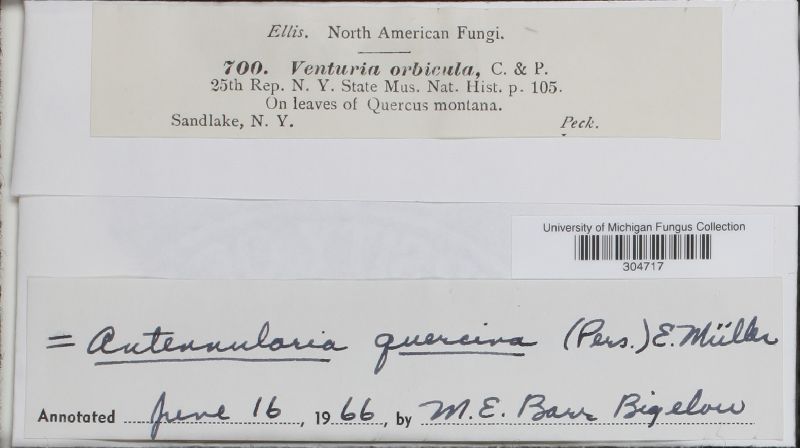 Ellis. North American Fungi.
700. Venturia orbicula, C. & P.
25th Rep. N. Y. State Mus. Nat. Hist. p. 105.
On leaves of Quercus montana.
Sandlake, N. Y. Peck.
University of Michigan Fungus Collection
304717
= Antennularia quercina (Pers.) E. Müller
Annotated June 16, 1966, by M. E. Barr Bigelow